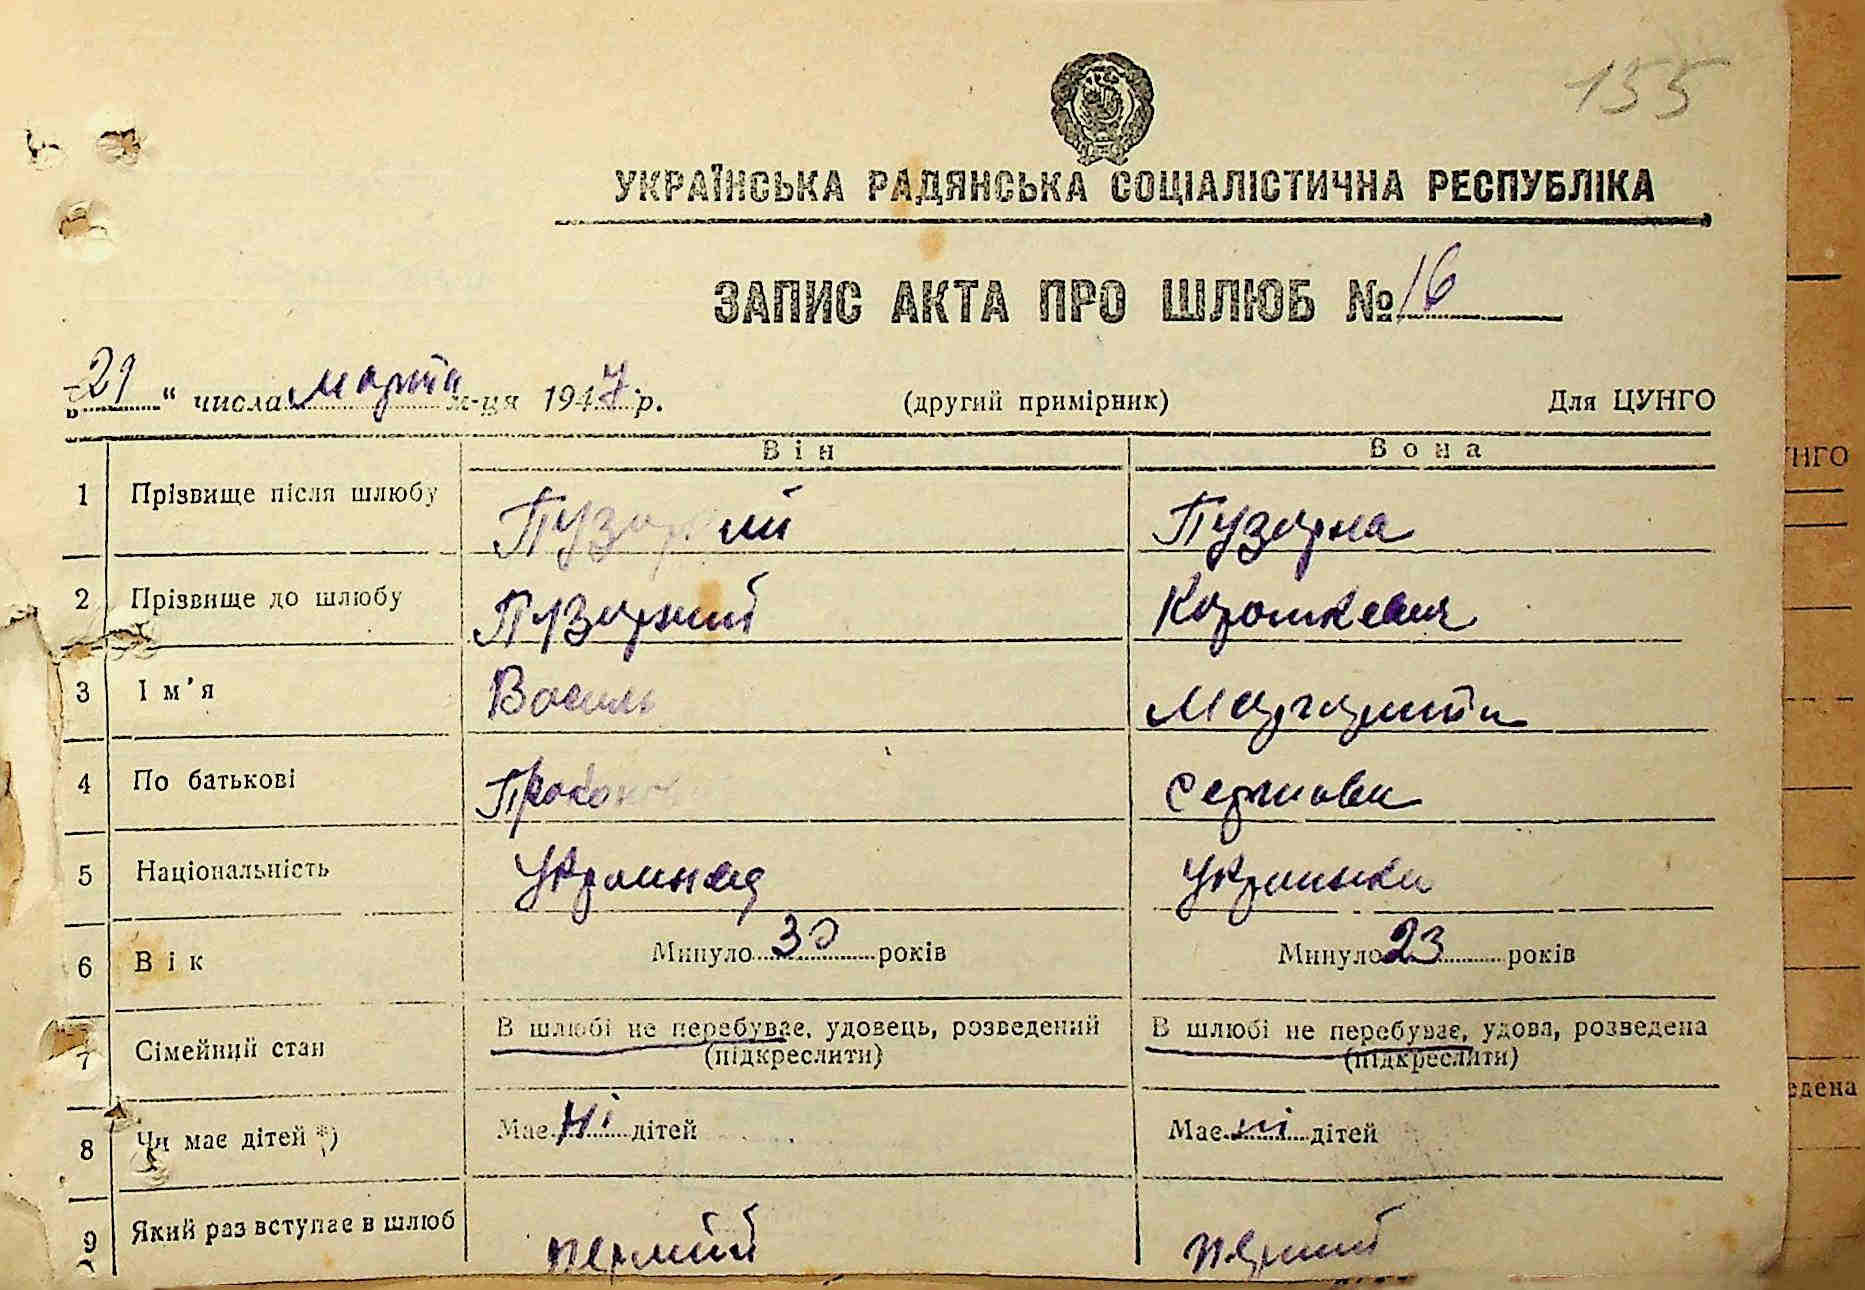 155
УКРАЇНСЬКА РАДЯНСЬКА СОЦІАЛІСТИЧНА РЕСПУБЛІКА
ЗАПИС АКТА ПРО ШЛЮБ № 16
„21“ числа марта м-ця 1947 р. (другий примірник) Для ЦУНГО
Він Вона
1 Прізвище після шлюбу Пузирний Пузирна
2 Прізвище до шлюбу Пузирний
3 Ім'я Василь Маргарита
4 По батькові Сергіївна
5 Національність Українец Українка
6 Вік Минуло 30 років Минуло 23 років
7 Сімейний стан В шлюбі не перебуває, удовець, розведений В шлюбі не перебуває, удова, розведена
(підкреслити) (підкреслити)
8 Чи має дітей *) Має ні дітей Має ні дітей
9 Який раз вступає в шлюб первий первий
НГО
едена